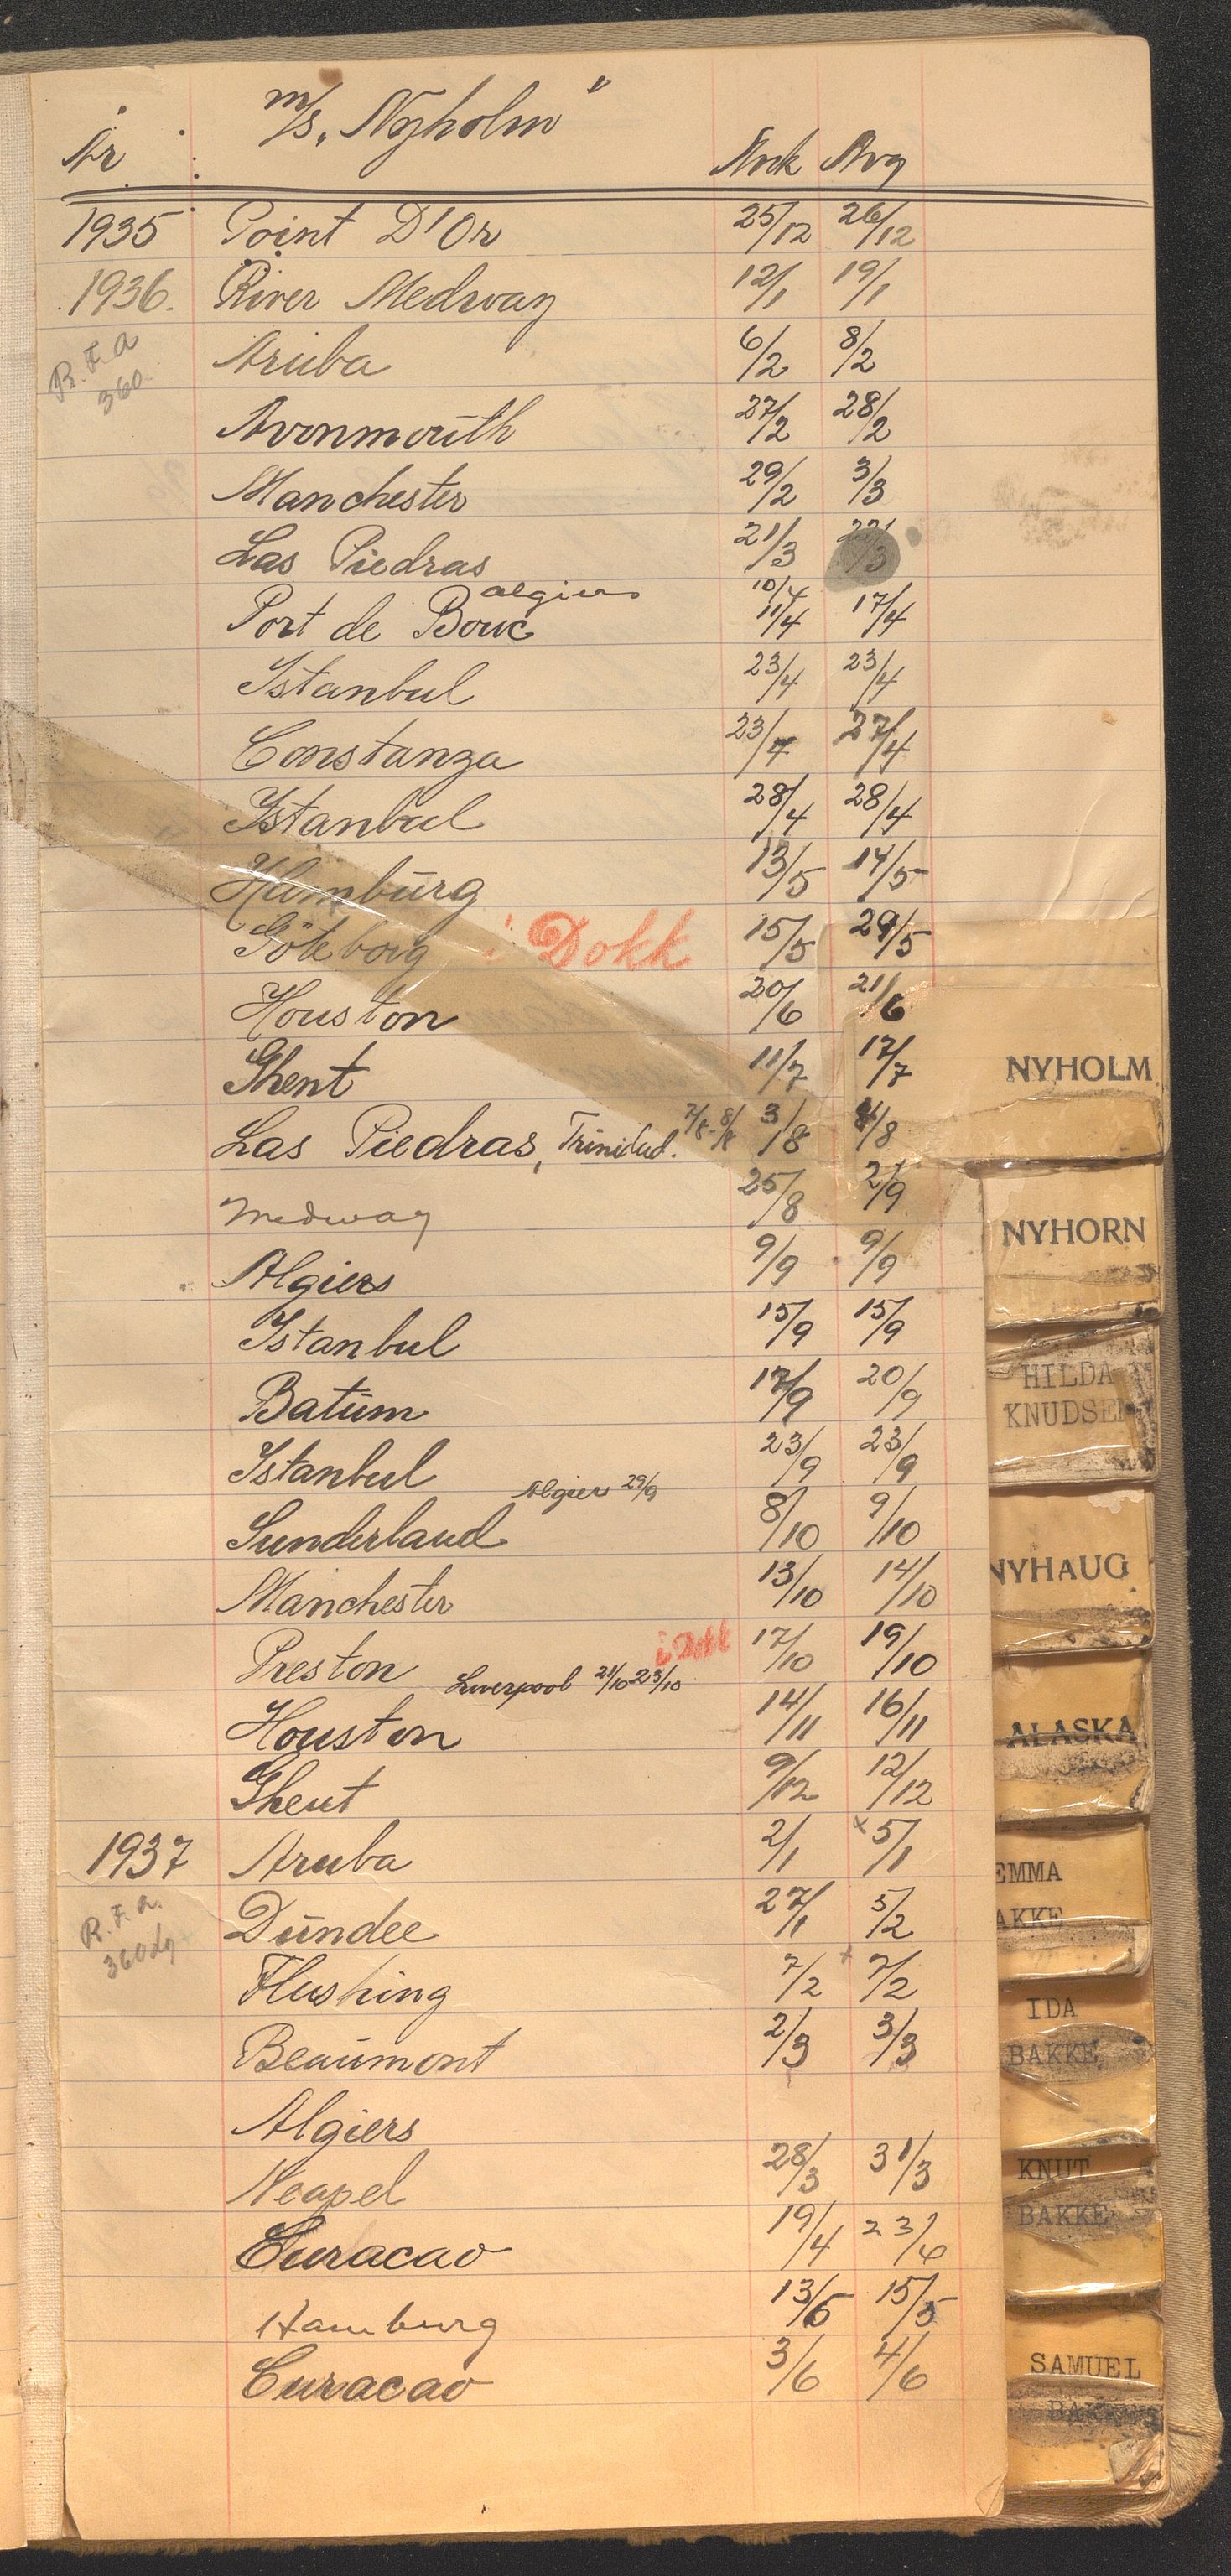 m/s. "Nyholm"
År Ank Avg
1935 Point D'Or 25/12 26/12
1936. River Medway 12/1 19/1
R.F.A 360. Aruba 6/2 8/2
Avonmouth 27/2 28/2
Manchester 29/2 3/3
Las Piedras 21/3 22/3
algiers 10/4
Port de Bouc 11/4 17/4
Istanbul 23/4 23/4
Constanza 23/4 27/4
Istanbul 28/4 28/4
Hamburg 13/5 14/5
Göteborg i Dokk 15/5 29/5
Houston 20/6 21/6
Ghent 11/7 17/7
Las Piedras, Trinidad. 7/8-8/8 3/8 4/8
Medway 25/8 2/9
Algiers 9/9 9/9
Istanbul 15/9 15/9
Batum 17/9 20/9
Istanbul 23/9 23/9
Algier 29/9
Sunderland 8/10 9/10
Manchester 13/10 14/10
Preston 17/10 19/10
Liverpool 21/10 23/10
Houston 14/11 16/11
Ghent 9/12 12/12
1937 Aruba 2/1 x 5/1
R.F.A. 360 Dundee 27/1 5/2
Flushing 7/2 x 7/2
Beaumont 2/3 3/3
Algiers
Neapel 28/3 31/3
Curacao 19/4 23/4
Hamburg 13/5 15/5
Curacao 3/6 4/6
NYHOLM
NYHORN
HILDA
KNUDSEN
NYHAUG
ALASKA
EMMA
BAKKE
IDA
BAKKE
KNUT
BAKKE
SAMUEL
BAKKE